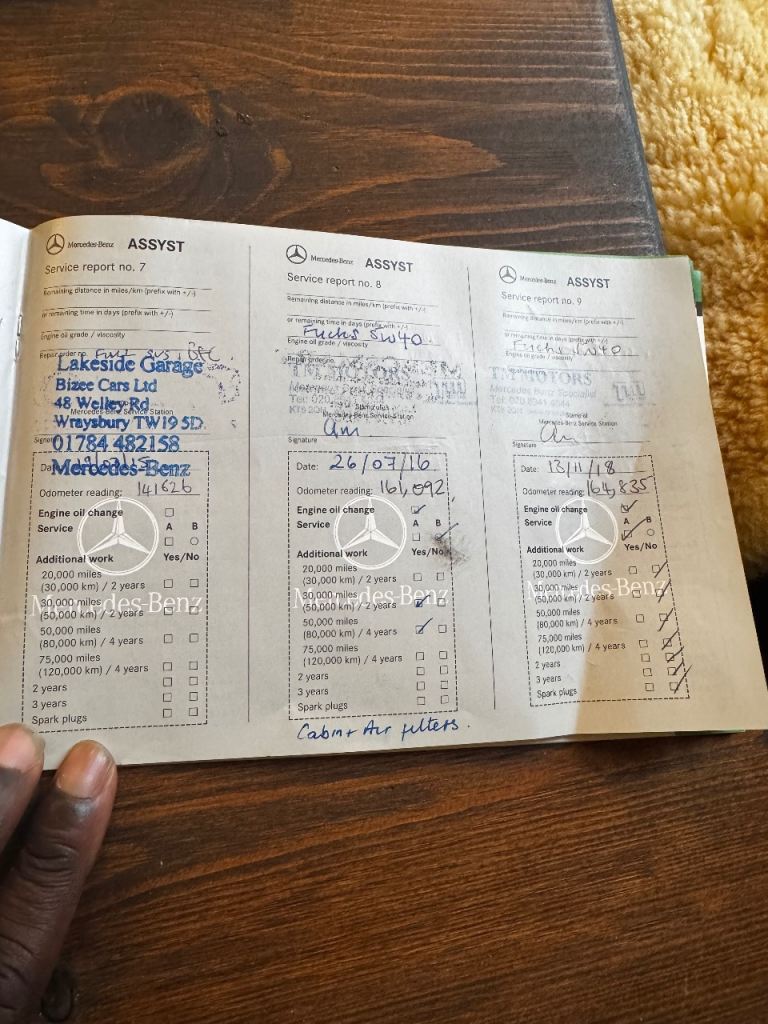 Mercedes-Benz ASSYST
Service report no. 7
Remaining distance in miles/km (prefix with +/-)
or remaining time in days (prefix with +/-)
Engine oil grade / viscosity
Repair order no.
Lakeside Garage
Bizee Cars Ltd
48 Welley Rd
Mercedes-Benz Service Station
Wraysbury TW19 5D
01784 482158
Mercedes-Benz
Odometer reading: 141626
Engine oil change
Service A B
Additional work Yes/No
20,000 miles
(30,000 km) / 2 years
30,000 miles
(50,000 km) / 2 years
Mercedes-Benz
50,000 miles
(80,000 km) / 4 years
75,000 miles
(120,000 km) / 4 years
2 years
3 years
Spark plugs
Mercedes-Benz ASSYST
Service report no. 8
Remaining distance in miles/km (prefix with +/-)
or remaining time in days (prefix with +/-)
Fuchs 5W40
Engine oil grade / viscosity
Repair order no.
MOTORS
Mercedes-Benz Service Station
Signature
Date: 26/07/16
Odometer reading: 161,092
Engine oil change
Service A B
Additional work Yes/No
20,000 miles
(30,000 km) / 2 years
30,000 miles
(50,000 km) / 2 years
Mercedes-Benz
50,000 miles
(80,000 km) / 4 years
75,000 miles
(120,000 km) / 4 years
2 years
3 years
Spark plugs
Cabin + Air filters.
Mercedes-Benz ASSYST
Service report no. 9
Remaining distance in miles/km (prefix with +/-)
or remaining time in days (prefix with +/-)
Fuchs 5W40
Engine oil grade / viscosity
MOTORS
Mercedes-Benz Specialist
Stamp of
Mercedes-Benz Service Station
Signature
Date: 13/11/18
Odometer reading: 164,835
Engine oil change
Service A B
Additional work Yes/No
20,000 miles
(30,000 km) / 2 years
30,000 miles
(50,000 km) / 2 years
Mercedes-Benz
50,000 miles
(80,000 km) / 4 years
75,000 miles
(120,000 km) / 4 years
2 years
3 years
Spark plugs